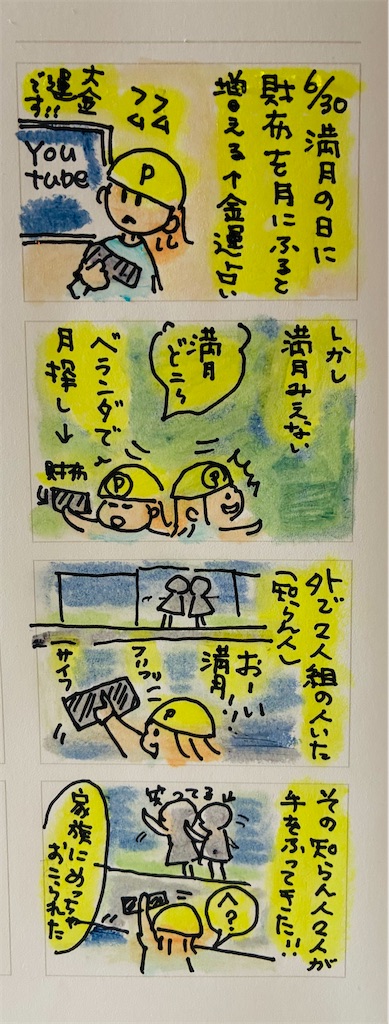 6/30 満月の日に
財布を月にふると
増える↑金運占い
フム
フム
大金
運
です!!
You
tube
P
しかし
満月みえない
満月
どこ
ベランダで
月探し↓
財布
P
P
外で2人組の人いた
(知らん人)
おーい!!
満月!!
フリフリ
サイフ
P
その知らん人2人が
手をふってきた!!
笑ってる
へ?
家族にめっちゃ
おこられた